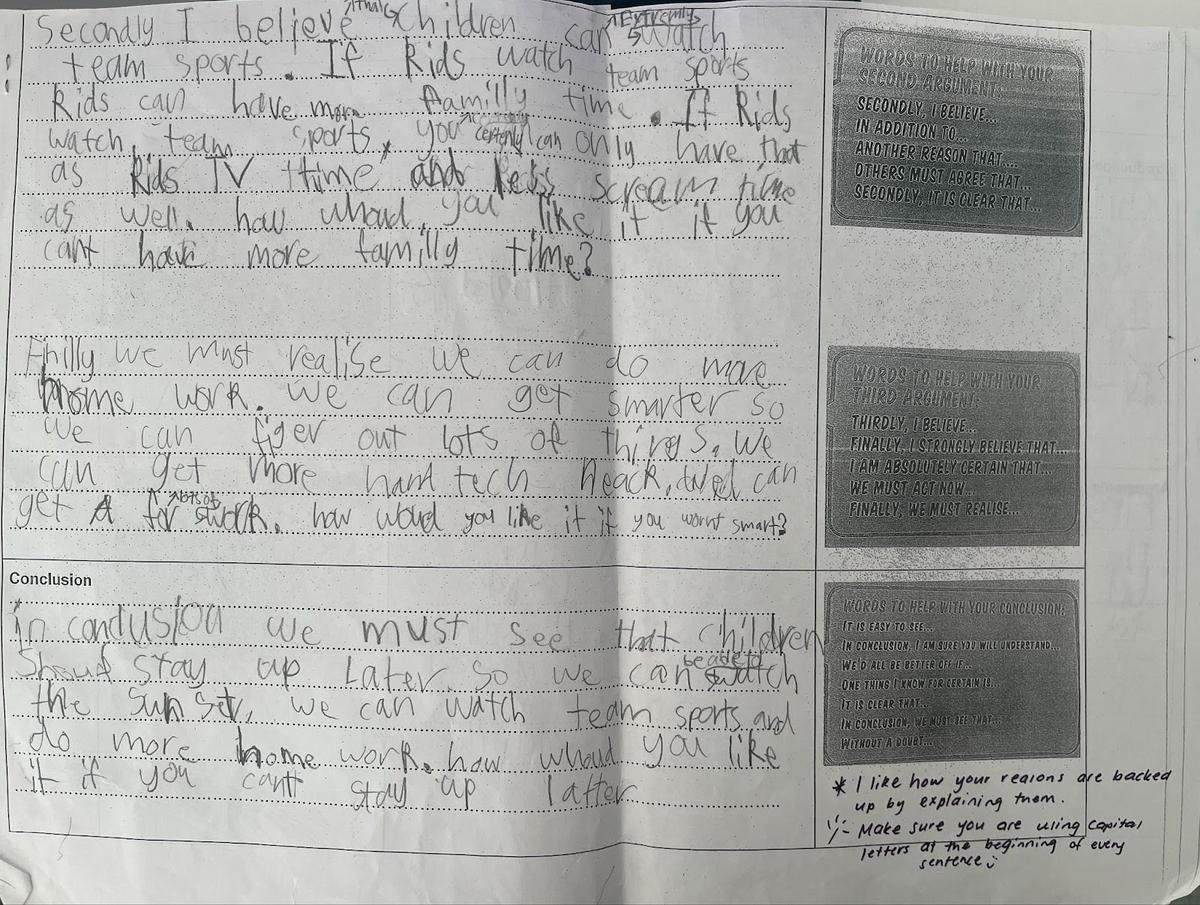 Secondly I believe ^thats children can ^Extremly watch
team sports. If Kids watch team sports
Kids can have more familly time. If Kids
watch team sports, you ^certenly can only have that
as Kids TV time and less scream time
as well. how whoud you like it if you
cant have more familly time?
Finilly we must realise we can do more
home work. we can get smarter so
we can figer out lots of things. We
can get more hard tech can
get A for ^lots of work. how woud you like it if you wornt smart?
Conclusion
in conclusion we must see that children
Shoud stay up Later. So we can be able to watch
the Sun set, we can watch team sports and
do more home work. how whoud you like
it if you cant stay up latter
WORDS TO HELP WITH YOUR
SECOND ARGUMENT:
SECONDLY, I BELIEVE...
IN ADDITION TO...
ANOTHER REASON THAT....
OTHERS MUST AGREE THAT...
SECONDLY, IT IS CLEAR THAT...
WORDS TO HELP WITH YOUR
THIRD ARGUMENT:
THIRDLY, I BELIEVE...
FINALLY, I STRONGLY BELIEVE THAT...
I AM ABSOLUTELY CERTAIN THAT...
WE MUST ACT NOW...
FINALLY, WE MUST REALISE...
WORDS TO HELP WITH YOUR CONCLUSION:
IT IS EASY TO SEE...
IN CONCLUSION, I AM SURE YOU WILL UNDERSTAND...
WE'D ALL BE BETTER OFF IF...
ONE THING I KNOW FOR CERTAIN IS...
IT IS CLEAR THAT...
IN CONCLUSION, WE MUST SEE THAT...
WITHOUT A DOUBT...
* I like how your reasons are backed
up by explaining them.
- Make sure you are using capital
letters at the beginning of every
sentence